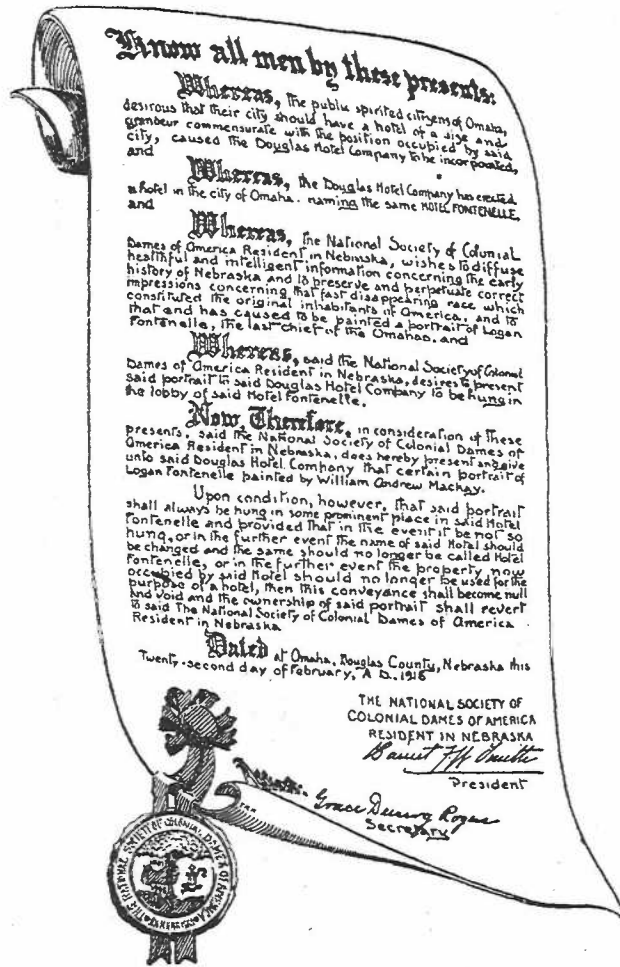 Know all men by these presents:
Whereas, the public spirited citizens of Omaha,
desirous that their city should have a hotel of a size and
grandeur commensurate with the position occupied by said
city, caused the Douglas Hotel Company to be incorporated,
and
Whereas, the Douglas Hotel Company has erected
a hotel in the city of Omaha. naming the same HOTEL FONTENELLE,
and
Whereas, the National Society of Colonial
Dames of America Resident in Nebraska, wishes to diffuse
healthful and intelligent information concerning the early
history of Nebraska and to preserve and perpetuate correct
impressions concerning that fast disappearing race which
constituted the original inhabitants of America, and to
that end has caused to be painted a portrait of Logan
Fontenelle, the last chief of the Omahas, and
Whereas, said the National Society of Colonial
Dames of America Resident in Nebraska, desires to present
said portrait to said Douglas Hotel Company to be hung in
the lobby of said Hotel Fontenelle.
Now, Therefore, in consideration of these
presents, said the National Society of Colonial Dames of
America Resident in Nebraska, does hereby present and give
unto said Douglas Hotel Company that certain portrait of
Logan Fontenelle painted by William Andrew Mackay.
Upon condition, however, that said portrait
shall always be hung in some prominent place in said Hotel
Fontenelle and provided that in the event it be not so
hung, or in the further event the name of said Hotel should
be changed and the same should no longer be called Hotel
Fontenelle, or in the further event the property now
occupied by said Hotel should no longer be used for the
purpose of a hotel, then this conveyance shall become null
and void and the ownership of said portrait shall revert
to said The National Society of Colonial Dames of America
Resident in Nebraska
Dated at Omaha, Douglas County, Nebraska this
Twenty-second day of February, A.D., 1916
THE NATIONAL SOCIETY OF
COLONIAL DAMES OF AMERICA
RESIDENT IN NEBRASKA
President
Grace Rogers
Secretary
THE NATIONAL SOCIETY OF COLONIAL DAMES OF AMERICA
NEBRASKA